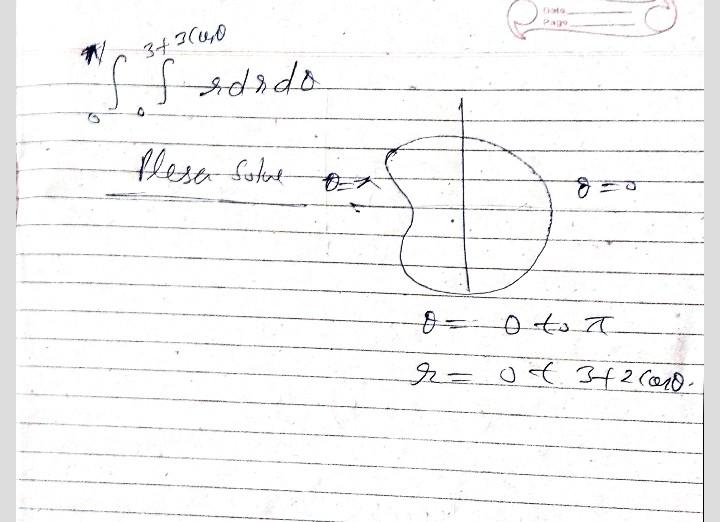 Date
Page
π 3+3Cosθ
∫ ∫ rdrdθ
0 0
Plese Solve
θ=π
θ=0
θ= 0 to π
r= 0 t 3+2Cosθ.